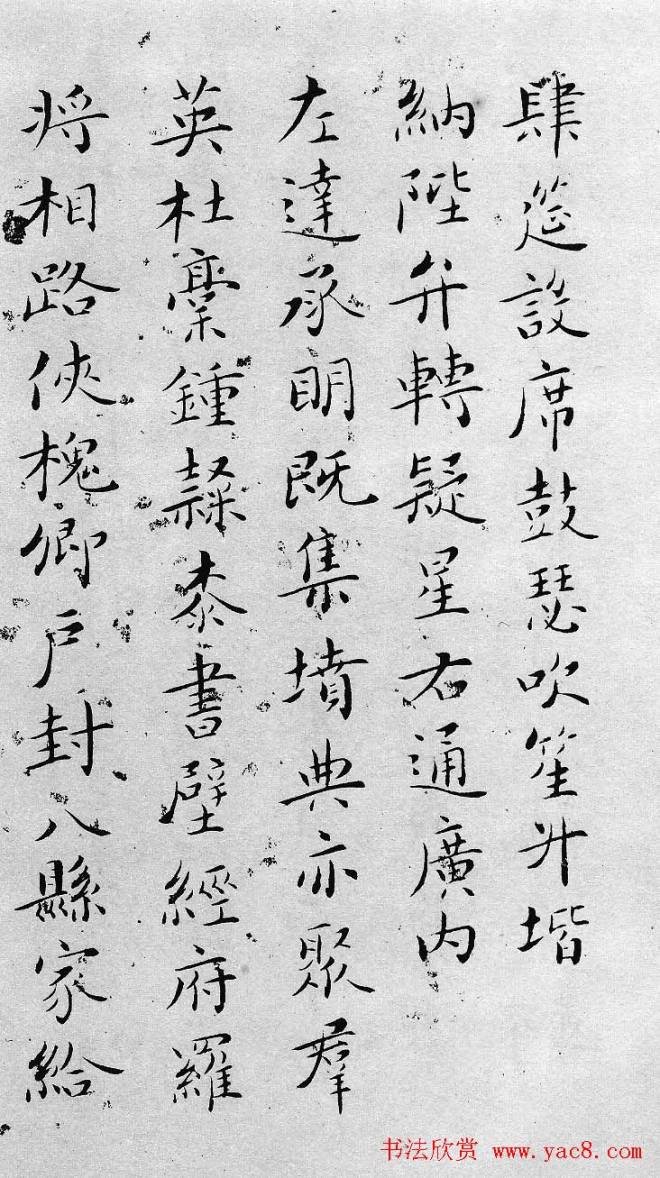 肆筵設席鼓瑟吹笙升堦
納陛弁轉疑星右通廣内
左達承明既集墳典亦聚羣
英杜稾鍾隸柒書壁經府羅
將相路俠槐卿戶封八縣家給
书法欣赏 www.yac8.com